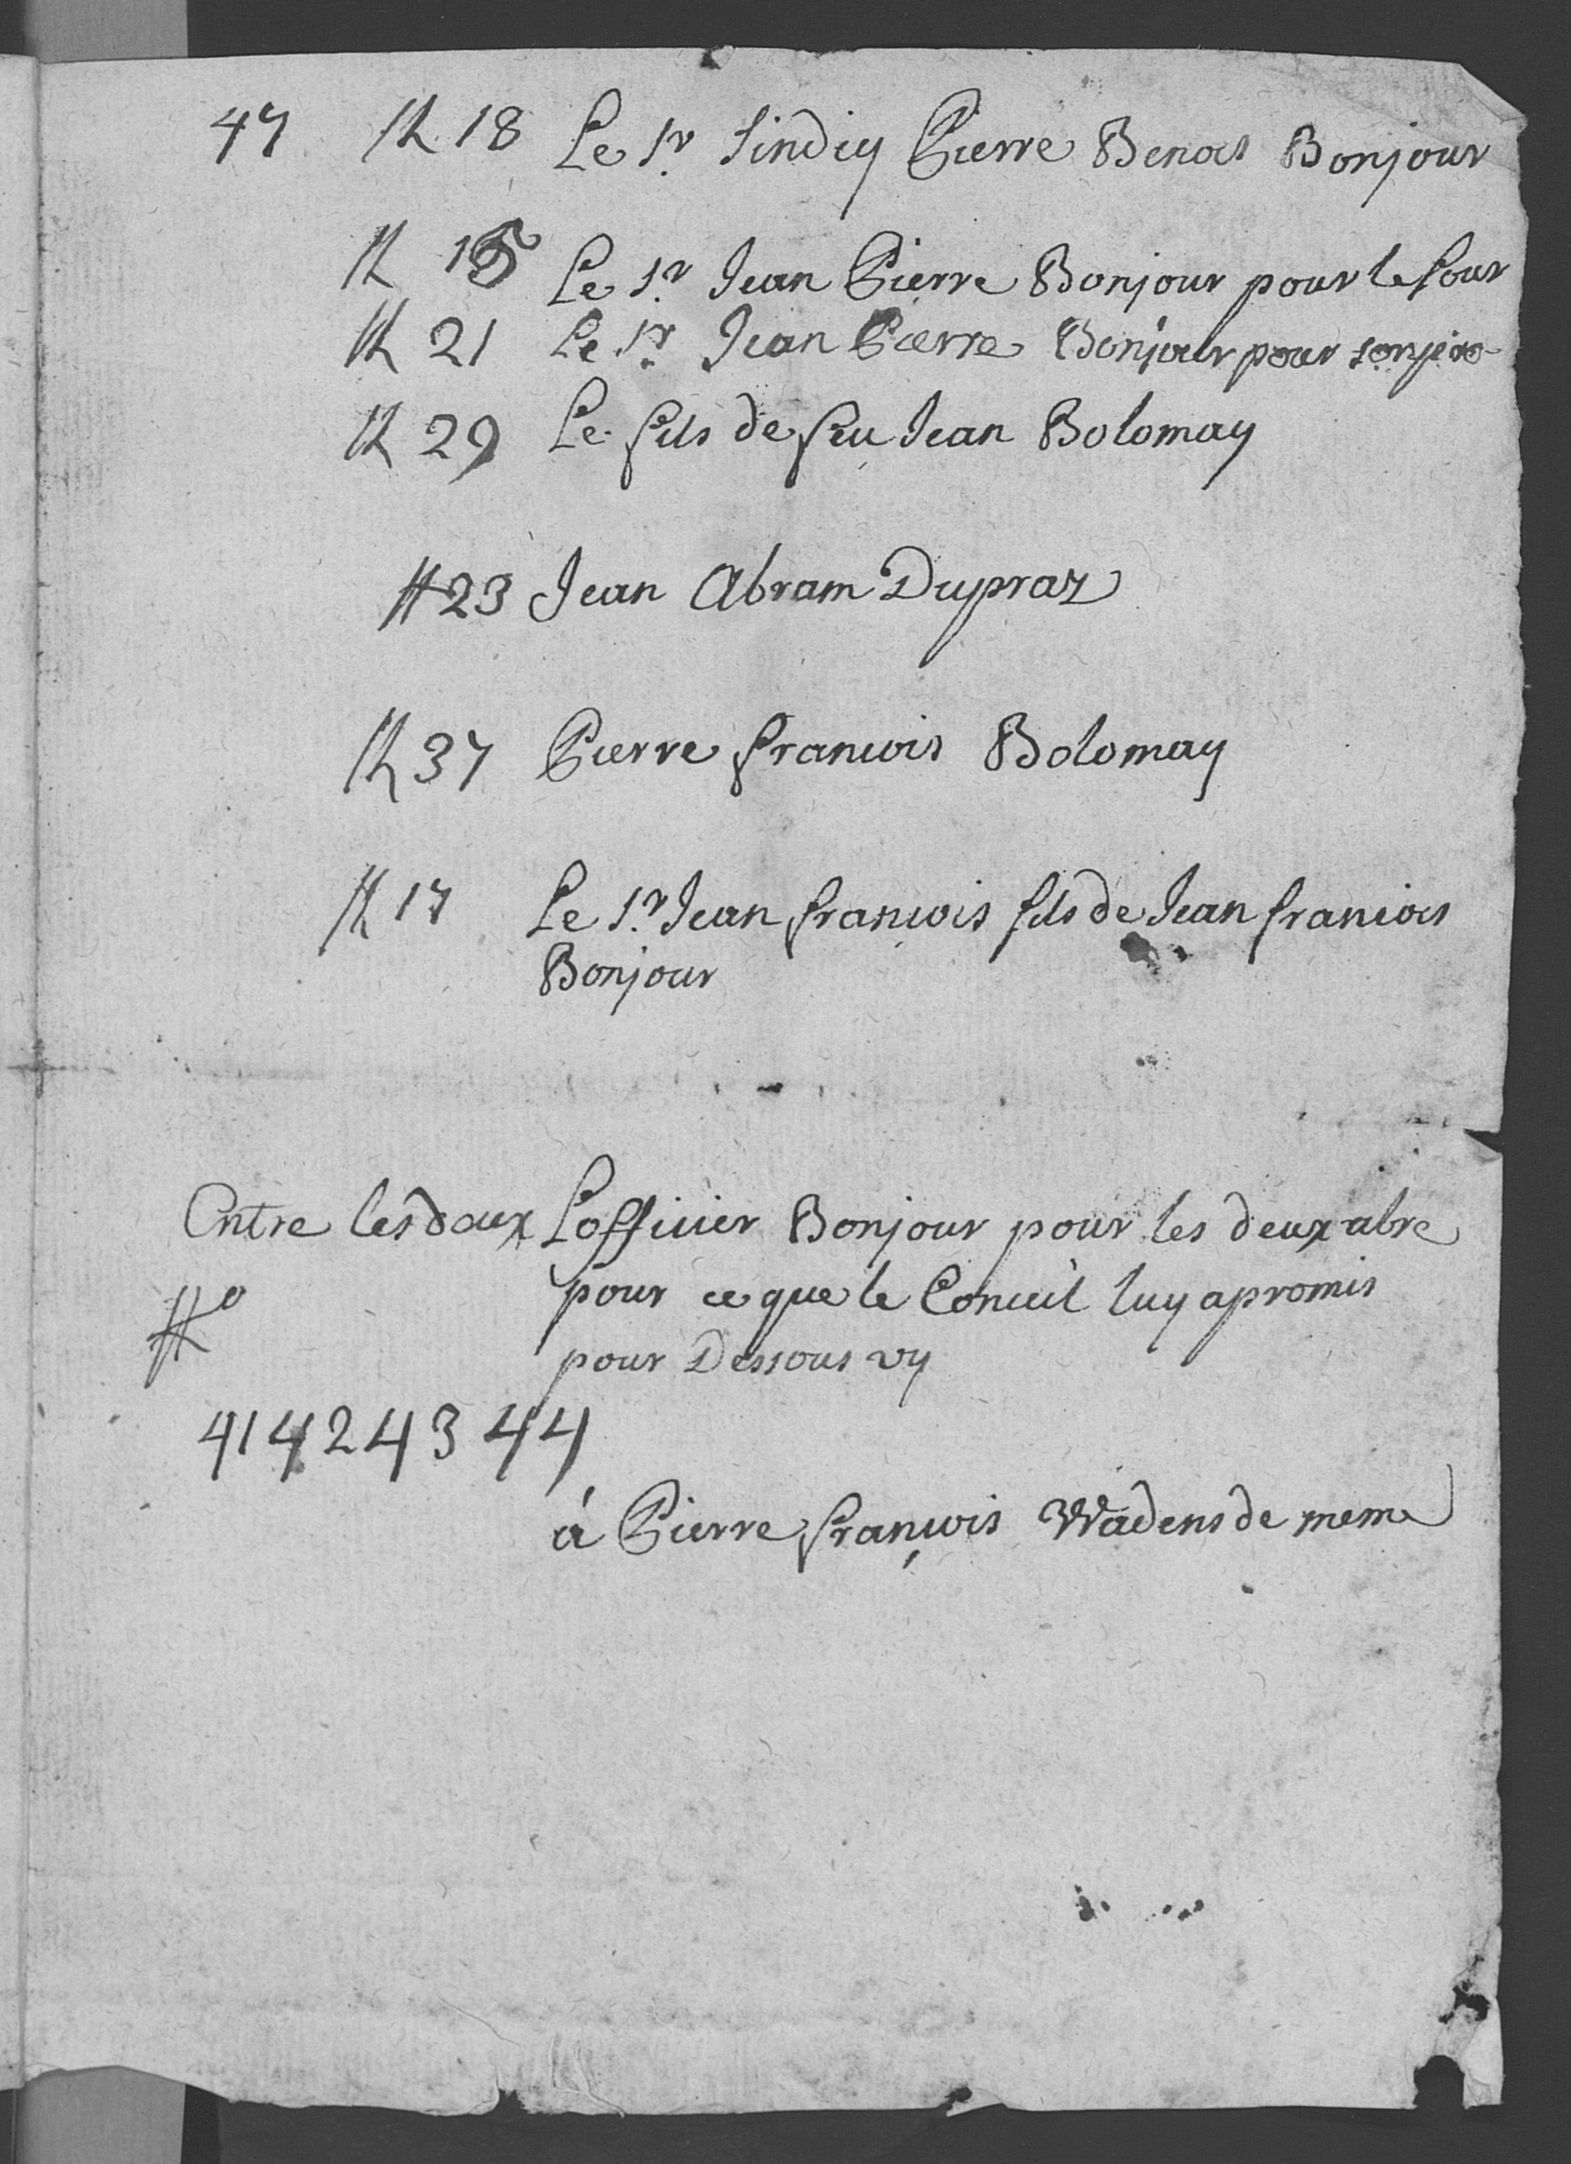 47 # 18 Le Sr. Sindiq Pierre Benois Bonjour
# 15 Le Sr. Jean Pierre Bonjour pour le four
# 21 Le Sr. Jean Pierre Bonjour pour son pere
# 29 Le fils de feu Jean Bolomay
# 23 Jean Abram Dupraz
# 37 Pierre francois Bolomay
# 17 Le Sr. Jean francois fils de Jean francois
Bonjour
Entre les deux Lofficier Bonjour pour les deux abre
#o pour ce que le Conceil luy a promis
pour Dessous vy
41 42 43 44
à Pierre françois Wadens de meme